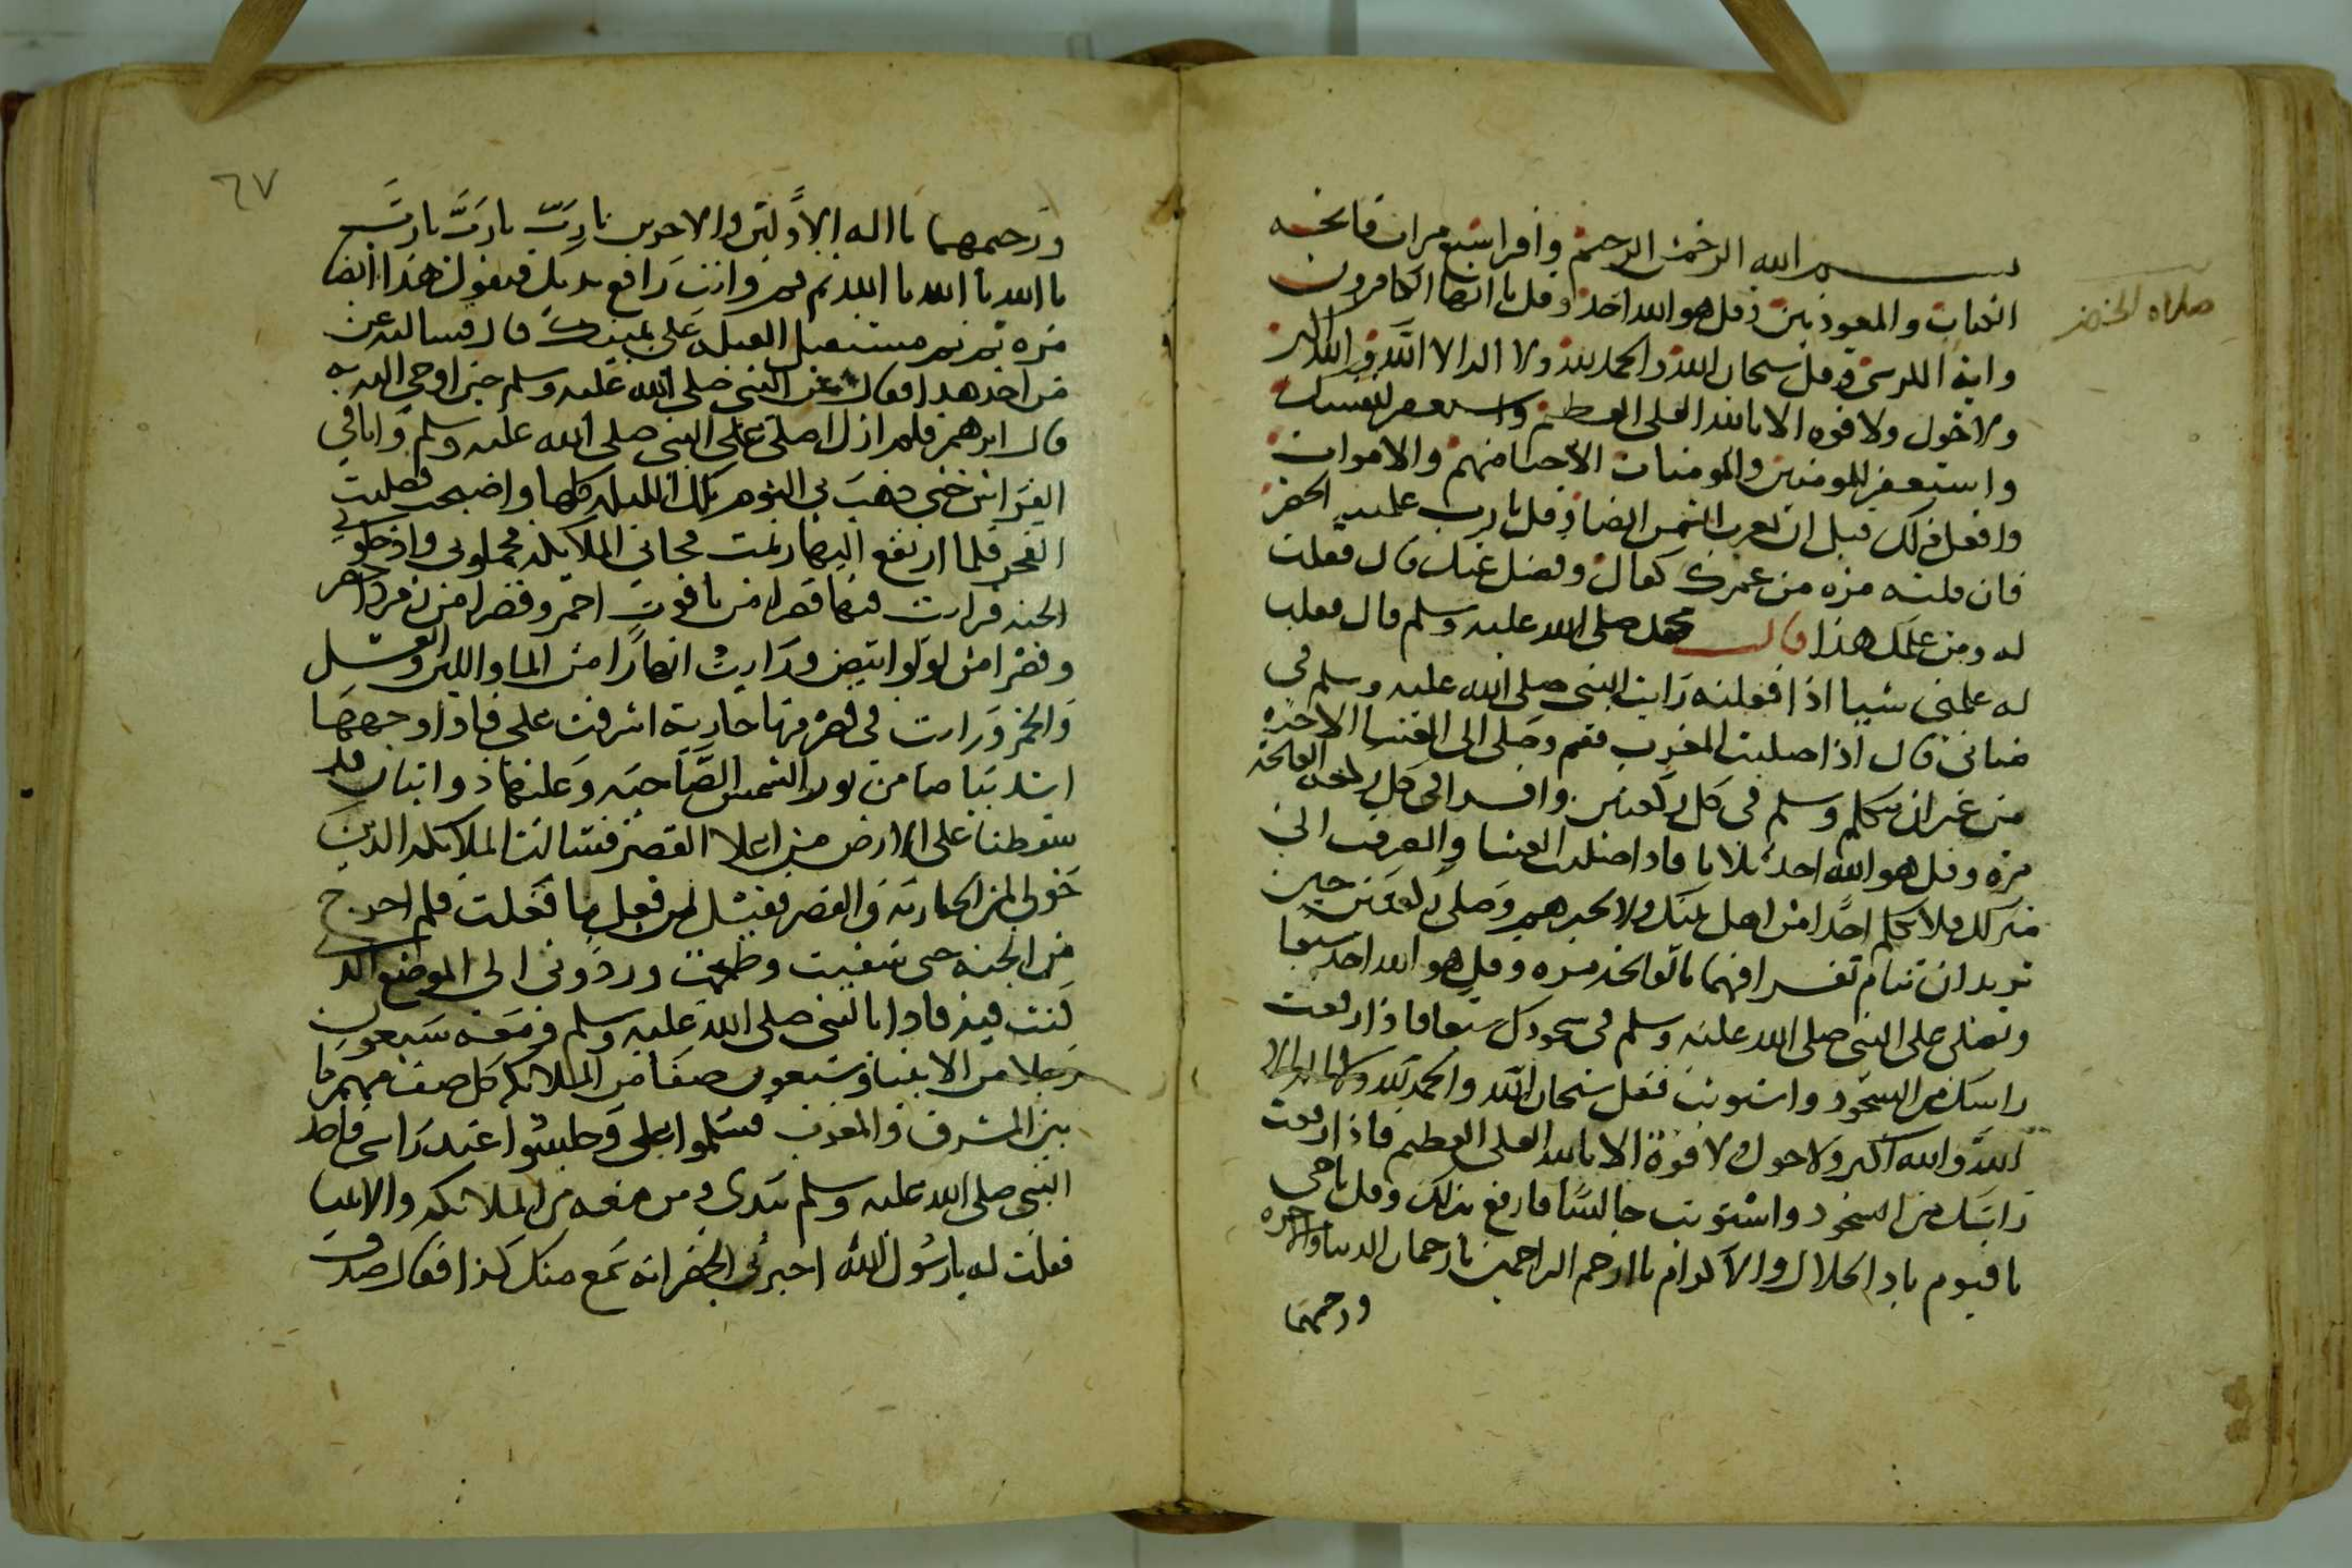 صلاه الخضر
بسم الله الرحمن الرحيم واقرا سبع مرات فاتحه
الكتاب والمعوذتين وقل هو الله احد وقل يا ايها الكافرون
واية الكرسي وقل سبحان الله والحمد لله ولا اله الا الله والله اكبر
ولا حول ولا قوه الا بالله العلى العظيم واستغفر لنفسك
واستغفر للمومنين والمومنات الاحيا منهم والاموات
وافعل ذلك قبل ان تغرب الشمس ايضا وقل يا رب علمنيه الخضر
فان قلته مره من عمرك كفاك وفضل عنك قال فقلت
له ومن علمك هذا قال محمد صلى الله عليه وسلم قال فقلت
له علمني شيا اذا فعلته رايت النبي صلى الله عليه وسلم في
منامي قال اذا صليت المغرب فقم وصلى الى العشا الاخره
من غير ان تتكلم وسلم في كل ركعتين واقرا في كل ركعه الفاتحة
مره وقل هو الله احد ثلاثا فاذا صليت العشا وانصرفت الى
منزلك فلا تكلم احدا من اهل بيتك ولا تخبرهم وصلى ركعتين حين
تريد ان تنام تقرا فيهما بالفاتحه مره وقل هو الله احد سبعا
وتصلى على النبي صلى الله عليه وسلم في سجودك سبعا فاذا رفعت
راسك من السجود واستويت فقل سبحان الله والحمد لله ولا اله الا
الله والله اكبر ولا حول ولا قوة الا بالله العلى العظيم فاذا رفعت
راسك من السجود واستويت جالسا فارفع يداك وقل يا حي
يا قيوم يا ذا الجلال والاكرام يا ارحم الراحمين يا رحمان الدنيا والاخره
ورحيمهما
٦٧
ورحيمهما يا اله الاولين والاخرين يا رب يا رب يا رب
يا الله يا الله يا الله ثم قم وانت رافع يديك فتقول هذا ايضا
مره ثم نم مستقبل القبله على يمينك قال فسالته عن
من اخذ هذا فقال عن النبي صلى الله عليه وسلم حين اوحي اليه به
قال ابرهيم فلم ازل اصلي على النبي صلى الله عليه وسلم وانا في
الفراش حتى ذهب بي النوم تلك الليله كلها واصبحت فصليت
الفجر فلما ارتفع النهار نمت فجاتي الملايكه فحملوني وادخلوني
الجنه فرايت فيها قصرا من ياقوت احمر وقصرا من زمرد اخضر
وقصرا من لولو ابيض ورايت انهارا من الما واللبن والعسل
والخمر ورايت في قصر منها جارية اشرفت علي فاذا وجهها
اشد بياضا من نور الشمس الضاحيه وعليها ذوابتان قد
سقطتا على الارض من اعلا القصر فسالت الملايكه الذين
حولي لمن الجاريه والقصر فقيل لمن فعل ما فعلت فلم اخرج
من الجنه حتى سقيت وطعمت وردوني الى الموضع الذي
كنت فيه فاذا بالنبي صلى الله عليه وسلم ومعه سبعون
رجلا من الانبيا وسبعون صفا من الملايكه كل صف منهم ما
بين المشرق والمغرب فسلموا علي وجلسوا عند راسي فاخذ
النبي صلى الله عليه وسلم بيدي ومن معه من الملايكه والانبيا
فقلت له يا رسول الله اخبرني الخضر انه سمع منك كذا فقال صدق